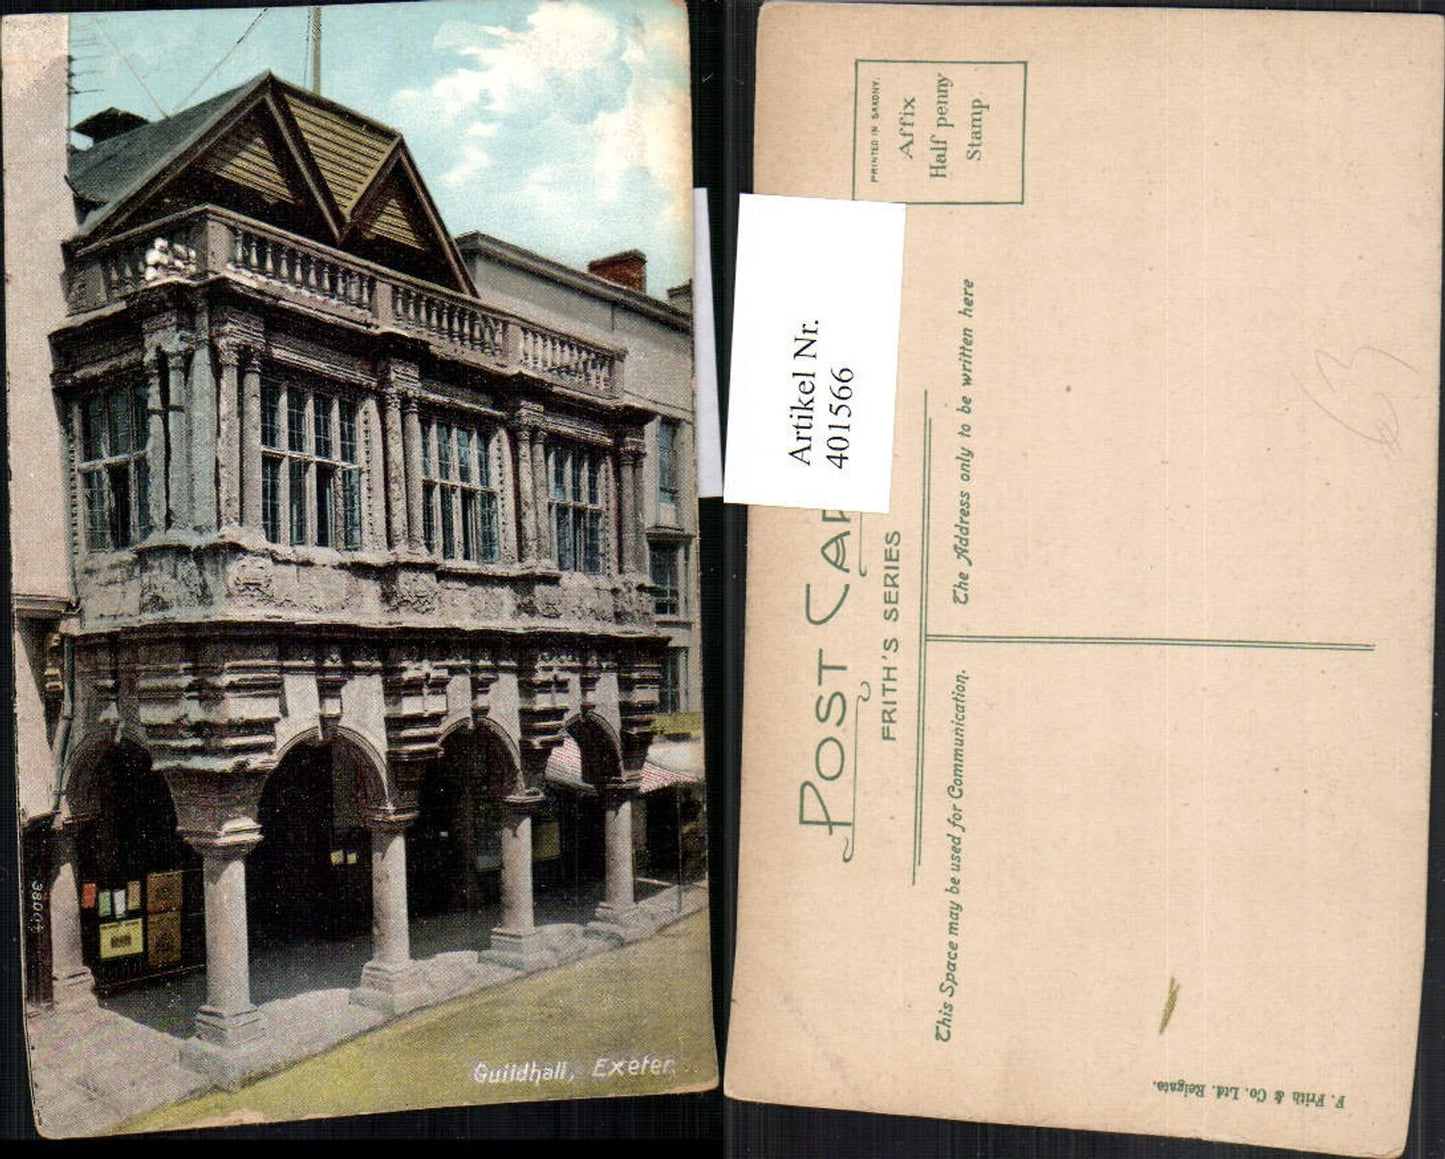 38004
Guildhall, Exeter.
PRINTED IN SAXONY.
Affix
Half penny
Stamp.
Artikel Nr.
401566
POST CAR
FRITH'S SERIES
The Address only to be written here
This Space may be used for Communication.
F. Frith & Co. Ltd. Reigate.
63